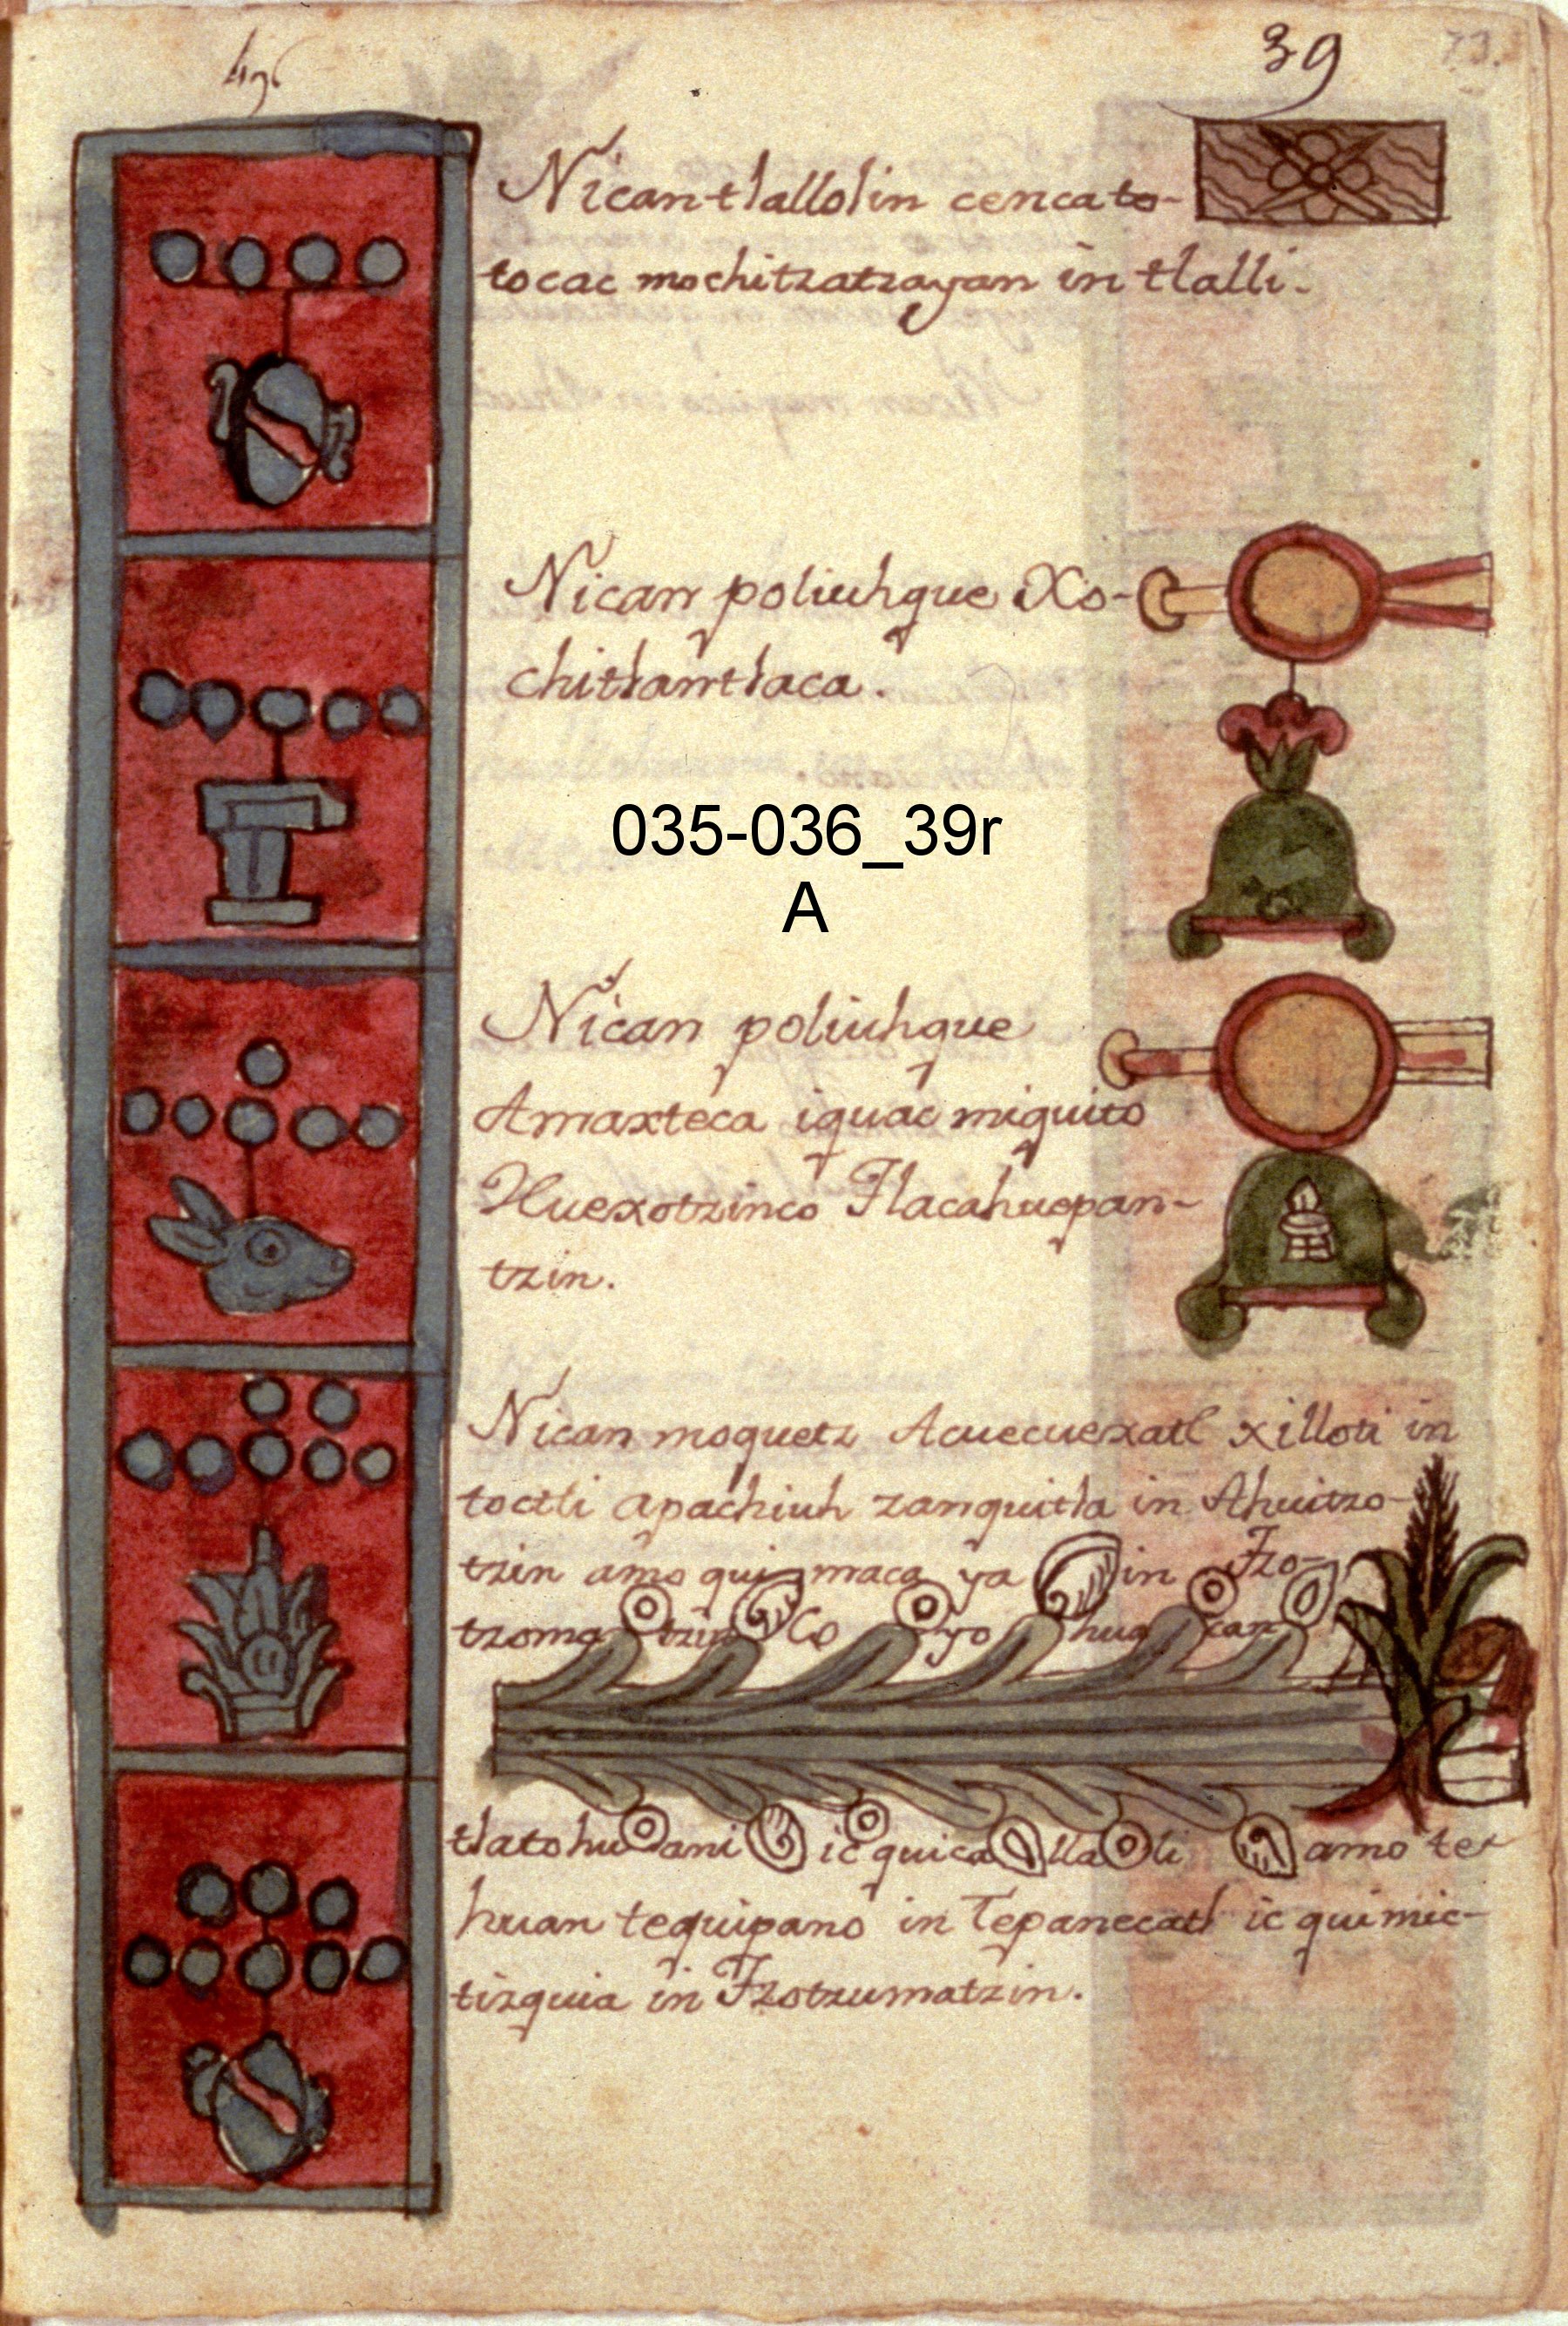 39
73.
Nican tlallolin cencato-
tocac mochitzatzayan in tlalli.
Nican poliuhque Xo-
chitlantlaca.
035-036_39r
A
Nican poliuhque
Amaxteca iquac miquito
Huexotzinco Tlacahuepan-
tzin.
Nican moquetz Acuecuexatl xilloti in
toctli apachiuh zanquitla in Ahuitzo-
tzin amo qui maca ya in Tzo-
tzoma tzin Co yo hua can
tlatohu ani ic quica lla li amo te
huan tequipano in Tepanecatl ic quimic-
tizquia in Tzotzumatzin.